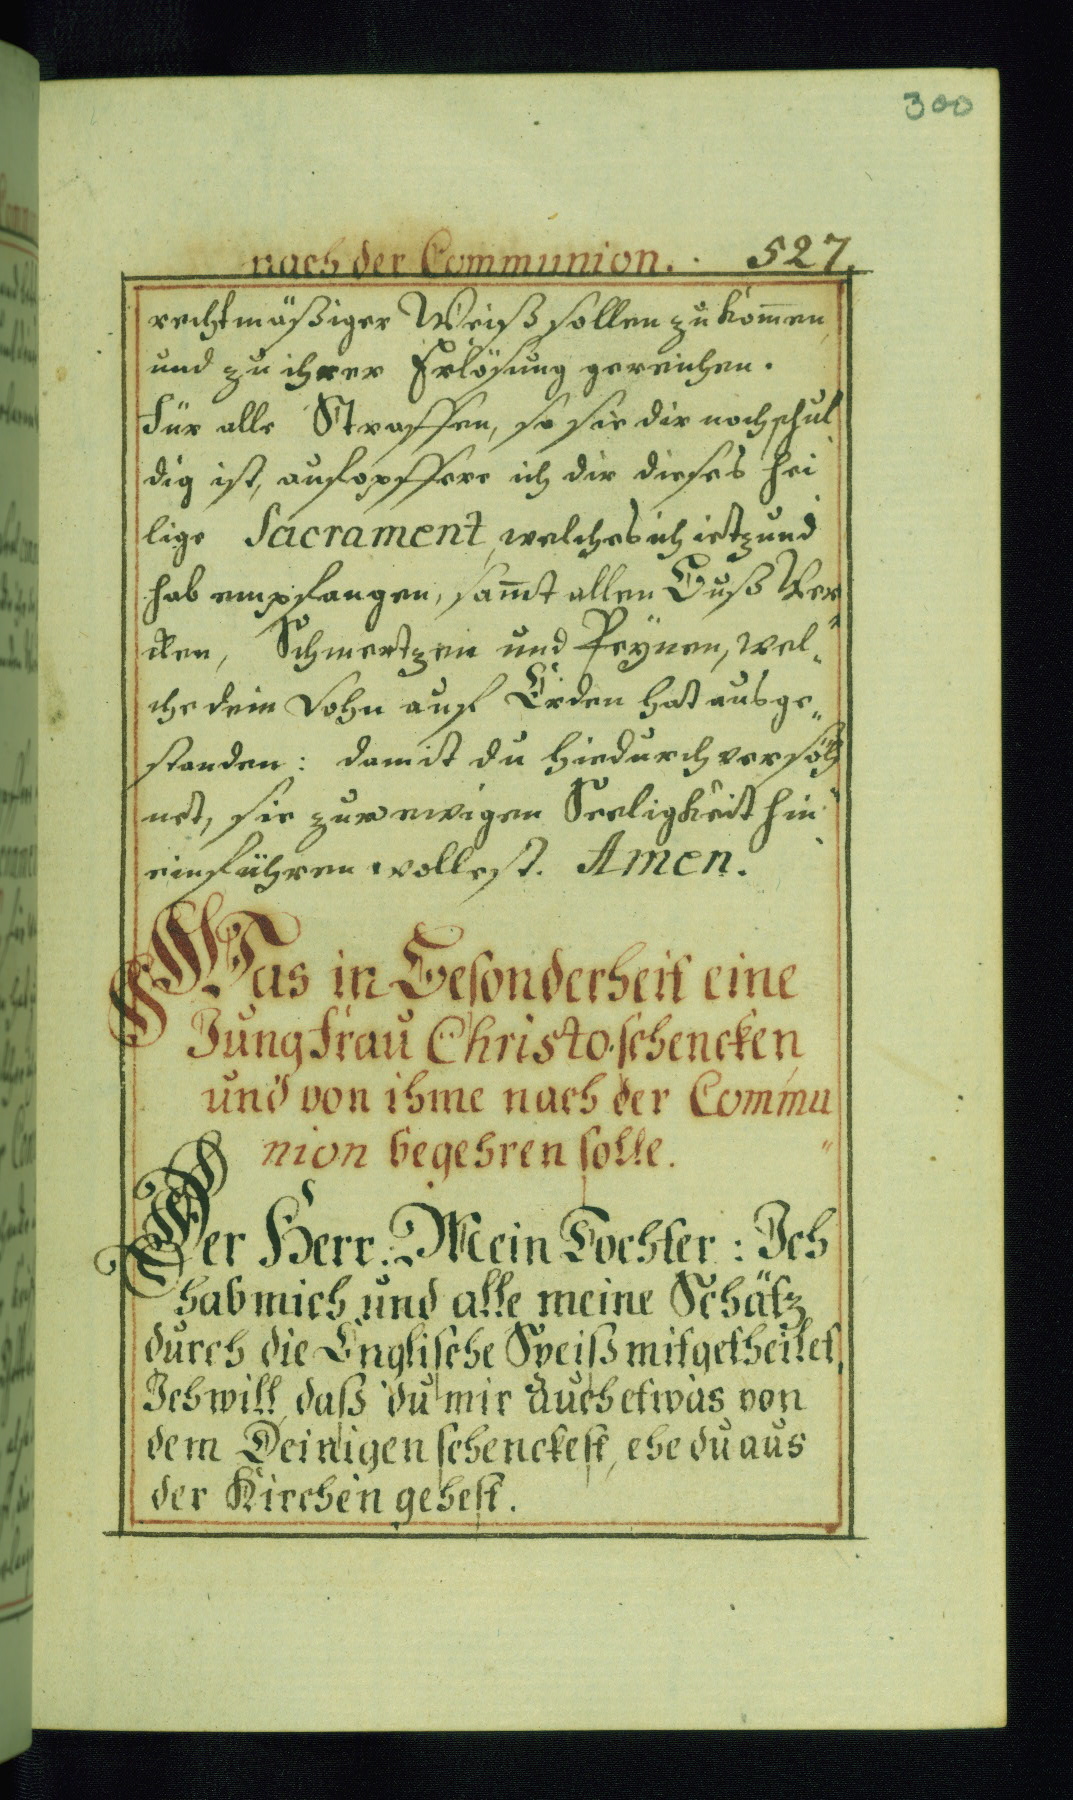 300
nach der Communion. 527.
rechtmäßiger Weiß sollen zukom̅en,
und zu ihrer Erlösung gereichen.
Für alle Straffen, so sie dir noch schul
dig ist, aufopffere ich dir dieses hei
lige Sacrament, welches ich ietzund
hab empfangen, sam̅t allen Buß Wer
cken, Schmertzen und Peÿnen, wel„
che dein Sohn auf Erden hat ausge„
standen: damit du hiedurch versöh
net, sie zur ewigen Seeligkeit hin
einführen wollest. Amen.
Was in Besonderheit eine
Jungfrau Christo schencken
und von ihme nach der Commu
nion begehren solle. "
Der Herr: Mein Tochter: Ich
hab mich und alle meine Schätz
durch die Englische Speiß mitgetheilet,
Ich will, daß du mir auch etwas von
dem Deinigen schenckest, ehe du aus
der Kirchen gehest.